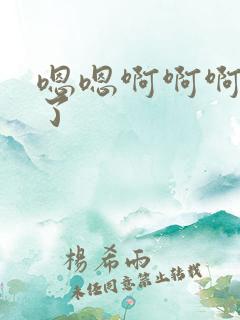 嗯嗯啊啊啊
了
楊希雨
未经同意禁止转载